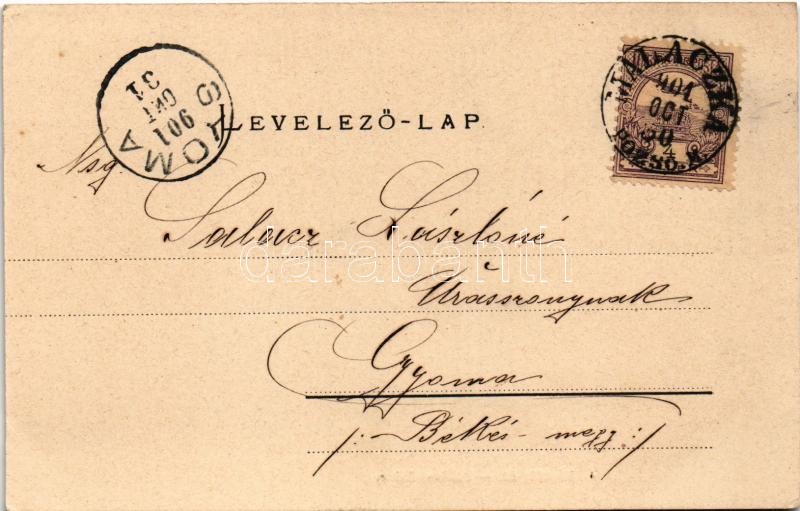 GYOMA
901
OKT
31
LEVELEZŐ-LAP.
MALACZKA
901
OCT
30
POZSO. M.
4
Nsg.
Salacz Lászlóné
Urasszonynak
Gyoma
/:Békés-megy:/
darabanth